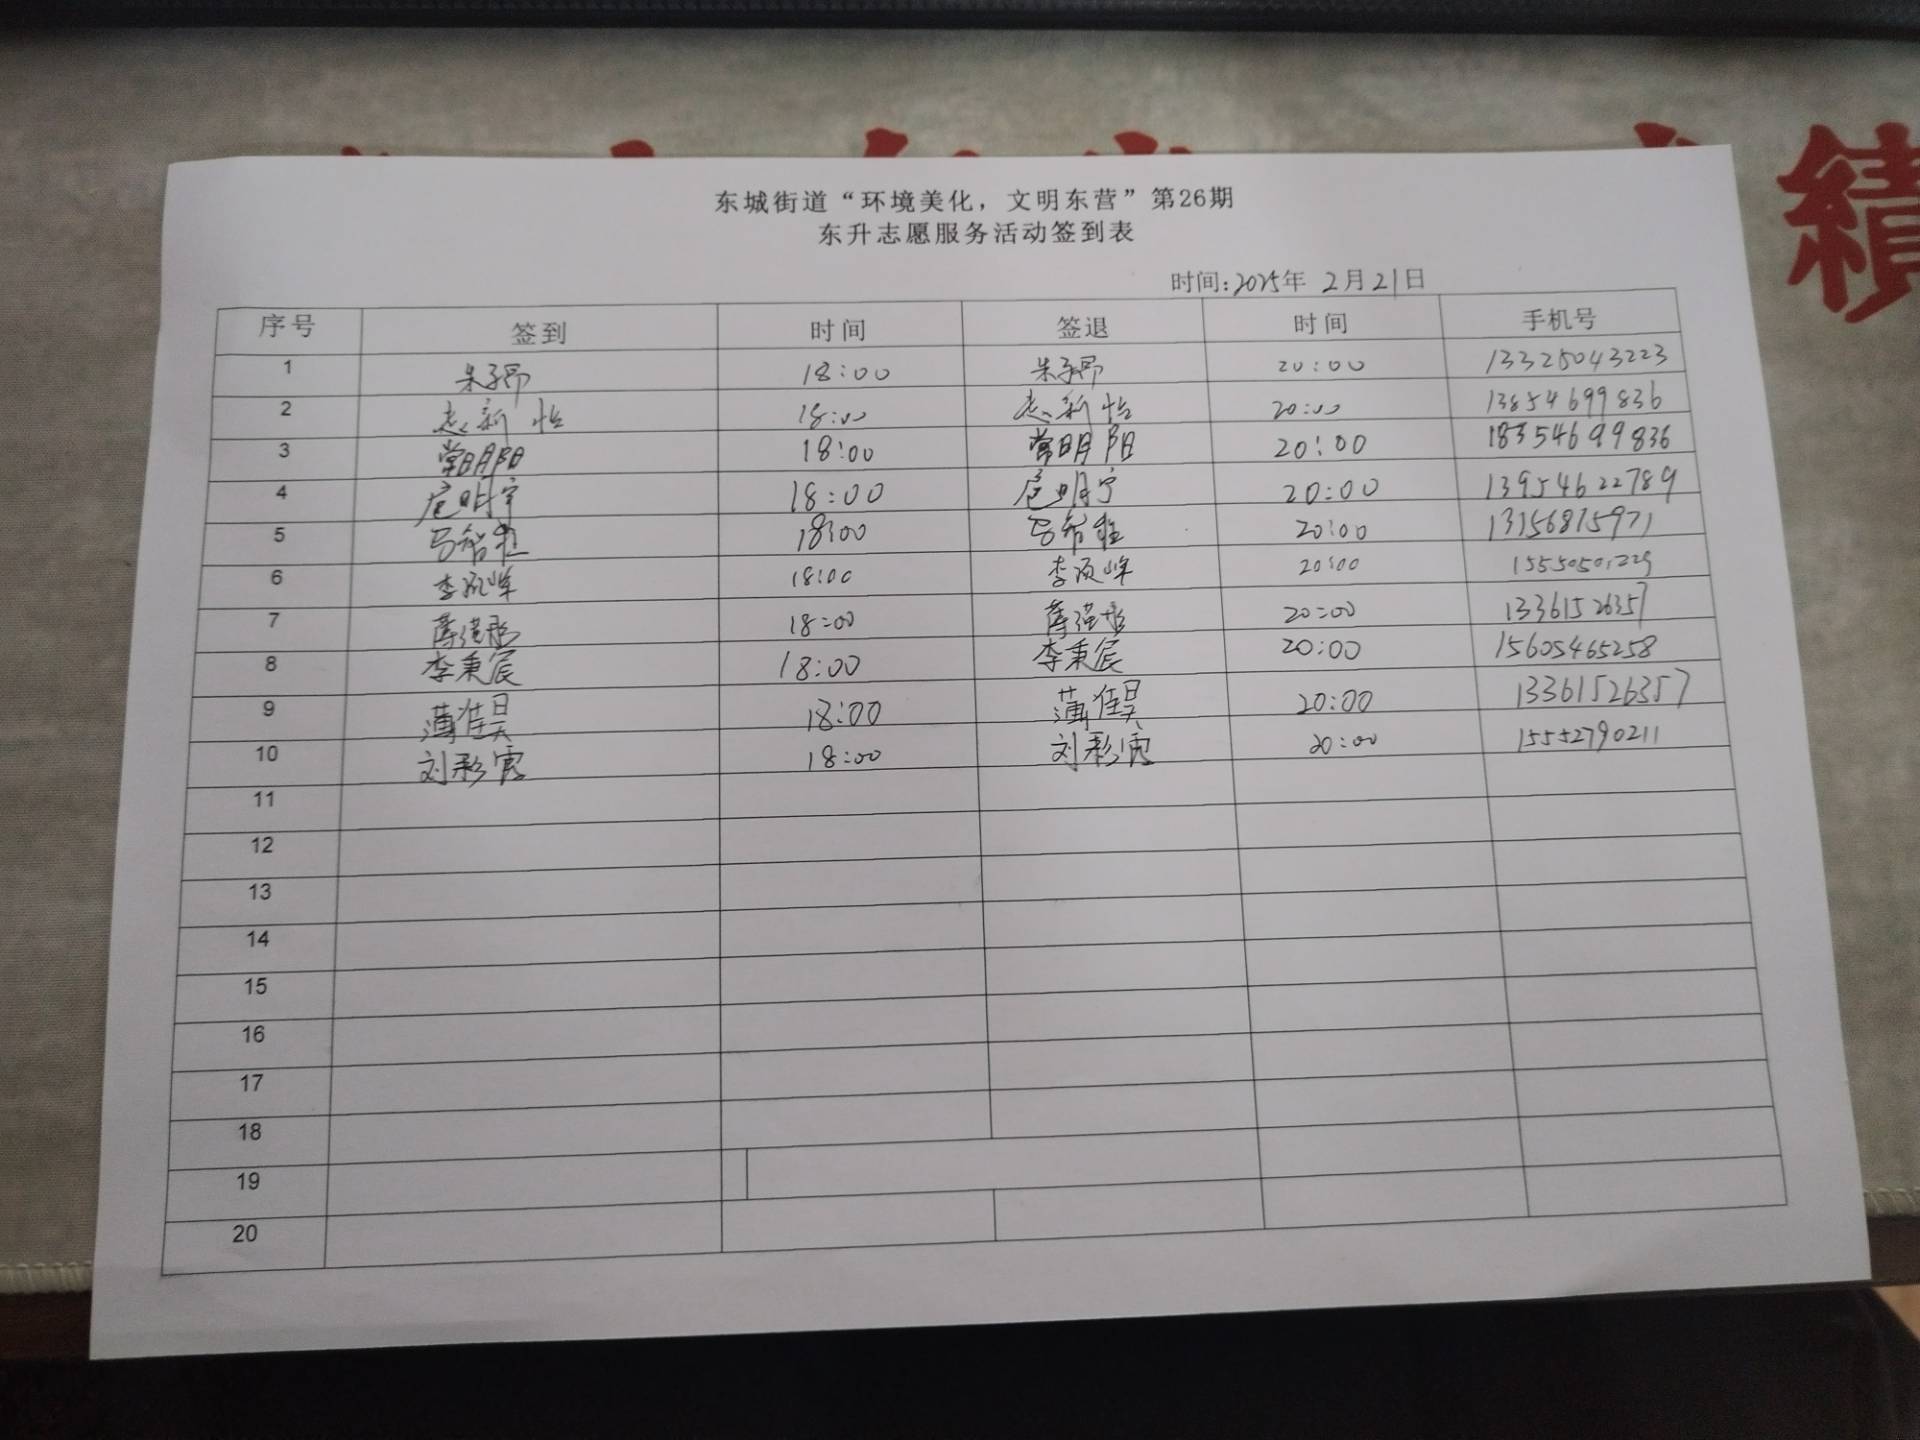 績
东城街道“环境美化，文明东营”第26期
东升志愿服务活动签到表
时间:2025年 2月21日
序号 签到 时间 签退 时间 手机号
1 朱子昂 18:00 朱子昂 20:00 13325043223
2 新怡 18:00 新怡 20:00 13854699836
3 常明阳 18:00 常明阳 20:00 18354699836
4 扈明宇 18:00 扈明宇 20:00 13954622789
5 18:00 20:00 13156815971
6 李 峰 18:00 李 峰 20:00
7 18:00 20:00 13361526357
8 李秉宸 18:00 李秉宸 20:00 15605465258
9 薄佳昊 18:00 薄佳昊 20:00 13361526357
10 刘彩霞 18:00 刘彩霞 20:00 15552790211
11
12
13
14
15
16
17
18
19
20